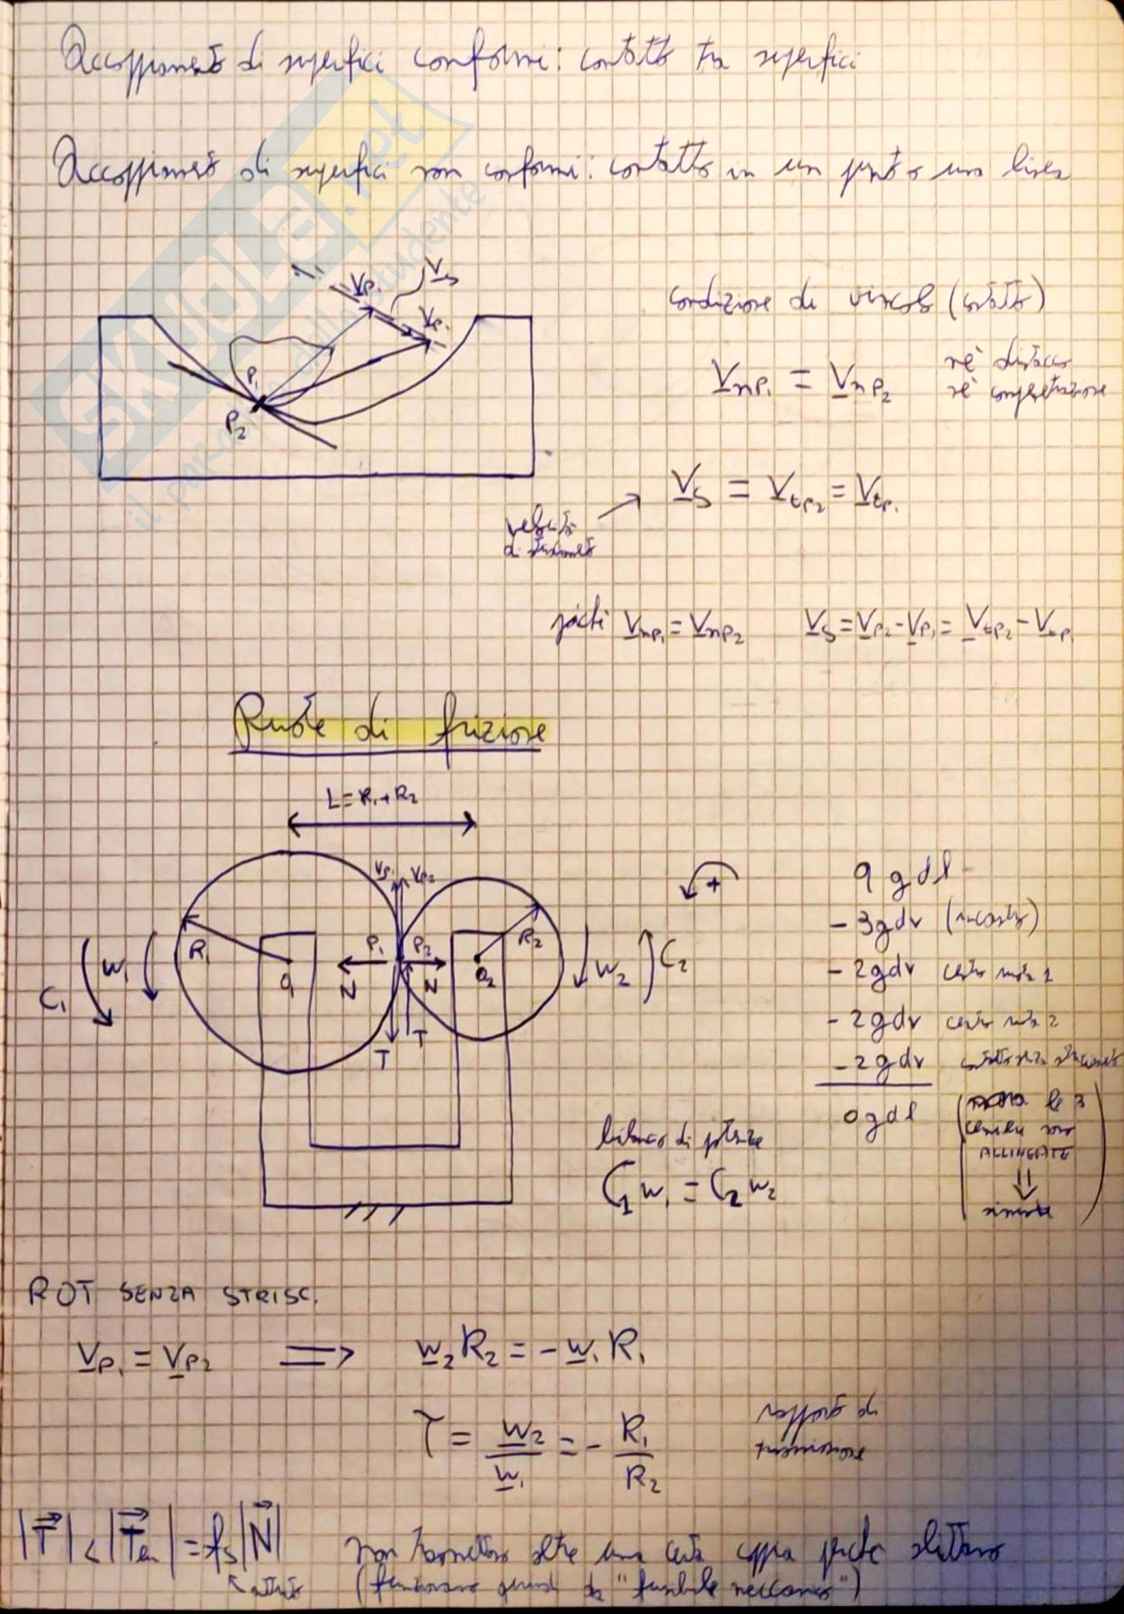 Accoppiamento di superfici conformi: contatto tra superfici
Accoppiamento di superfici non conformi: contatto in un punto o una linea
SKUOLA.net
il portale dello studente
V_P1 V_S
V_P1
P1
P2
condizione di vincolo (contatto)
V_nP1 = V_nP2 né distacco
né compenetrazione
V_S = V_tP2 = V_tP1
velocità
di strisciamento
poiché V_nP1 = V_nP2 V_S = V_P2 - V_P1 = V_tP2 - V_tP1
Ruote di frizione
L = R1 + R2
V_P1 V_P2
R1 P1 P2 R2
C1 w1 O1 N N O2 w2 C2
T T
+
9 gdl
- 3 gdv (incastro)
- 2 gdv cerniera 1
- 2 gdv cerniera 2
- 2 gdv contatto senza strisciamento
0 gdl (le 3
cerniere sono
ALLINEATE
⇓
bilancio di potenze
C1 w1 = C2 w2
ROT SENZA STRISC.
V_P1 = V_P2 ⟹ w2 R2 = - w1 R1
τ = w2/w1 = - R1/R2 rapporto di
trasmissione
|T| < |Ta| = fs |N| non trasmettono oltre una certa coppia perché slittano
attrito (funzionano quindi da "fusibile meccanico")